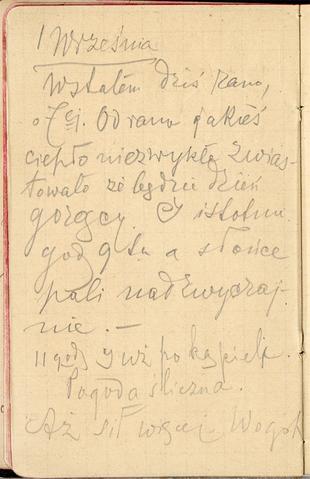 1 Września
Wstałem dziś rano,
o 7ej. Od rana jakieś
ciepło niezwykłe zwias-
towało że będzie dzień
gorący. I istotnie
god 9ta a słońce
pali nadzwyczaj-
nie. —
11 godz Już po kąpieli.
Pogoda śliczna.
Aż sił więcej. Wogól